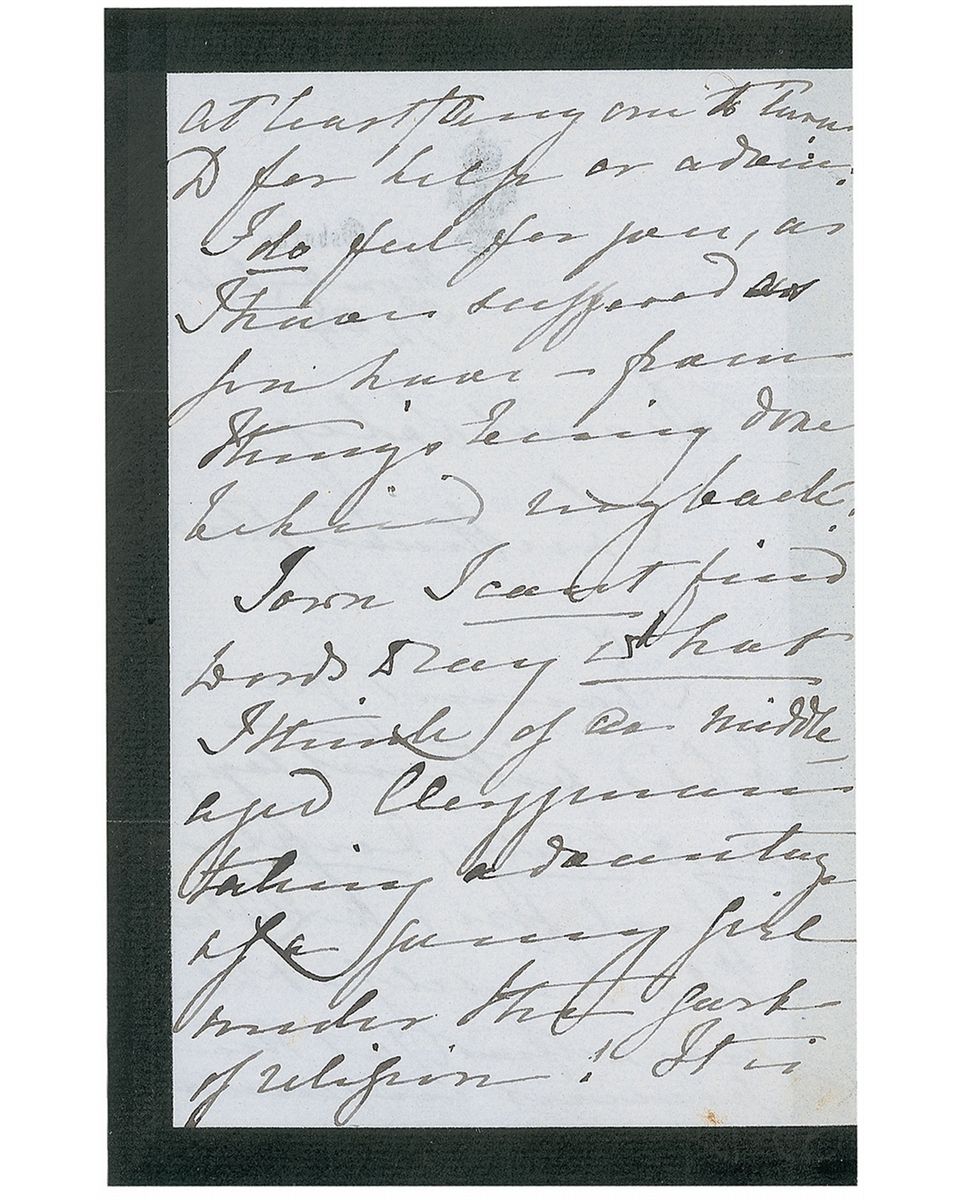 at least any one to turn
to for help or advice.
I do feel for you, as
I have suffered as
you have – from
things being done
behind my back.
I own I cant find
words to say what
I think of a middle
aged Clergyman
taking advantage
of a young girl
under the garb
of religion! It is